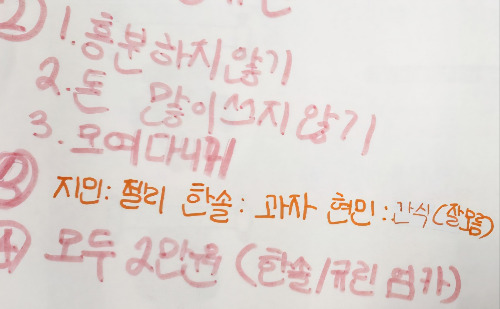 ② 1. 흥분하지 않기
2. 돈 많이 쓰지 않기
3. 모여다니귀
③ 지민: 젤리 한솔: 과자 현민: 간식(잘모름)
④ 모두 2만원 (한솔/규린 엄카)